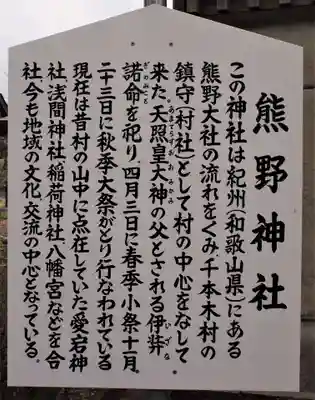 熊野神社
この神社は紀州(和歌山県)にある
熊野大社の流れをくみ、千本木村の
鎮守(村社)として村の中心をなして
来た。天照皇大神の父とされる伊弉
諾命を祀り、四月三日に春季小祭十一月
二十三日に秋季大祭がとり行なわれている
現在は昔村の山中に点在していた愛宕神
社、浅間神社、稲荷神社、八幡宮などを合
社、今も地域の文化、交流の中心となっている。